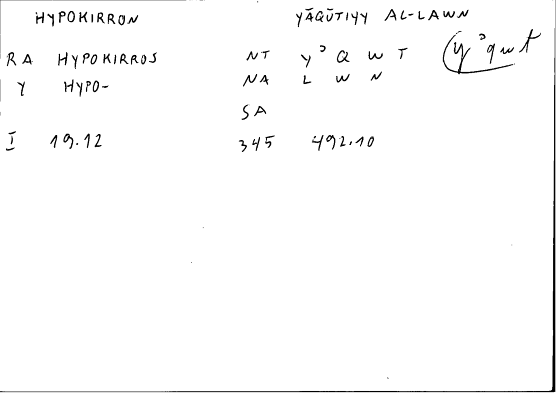 HYPOKIRRON YĀQŪTIYY AL-LAWN
RA HYPOKIRROS NT Y ʾ Q W T (y ʾ q w t
Y HYPO- NA L W N
SA
I 19.12 345 492.10